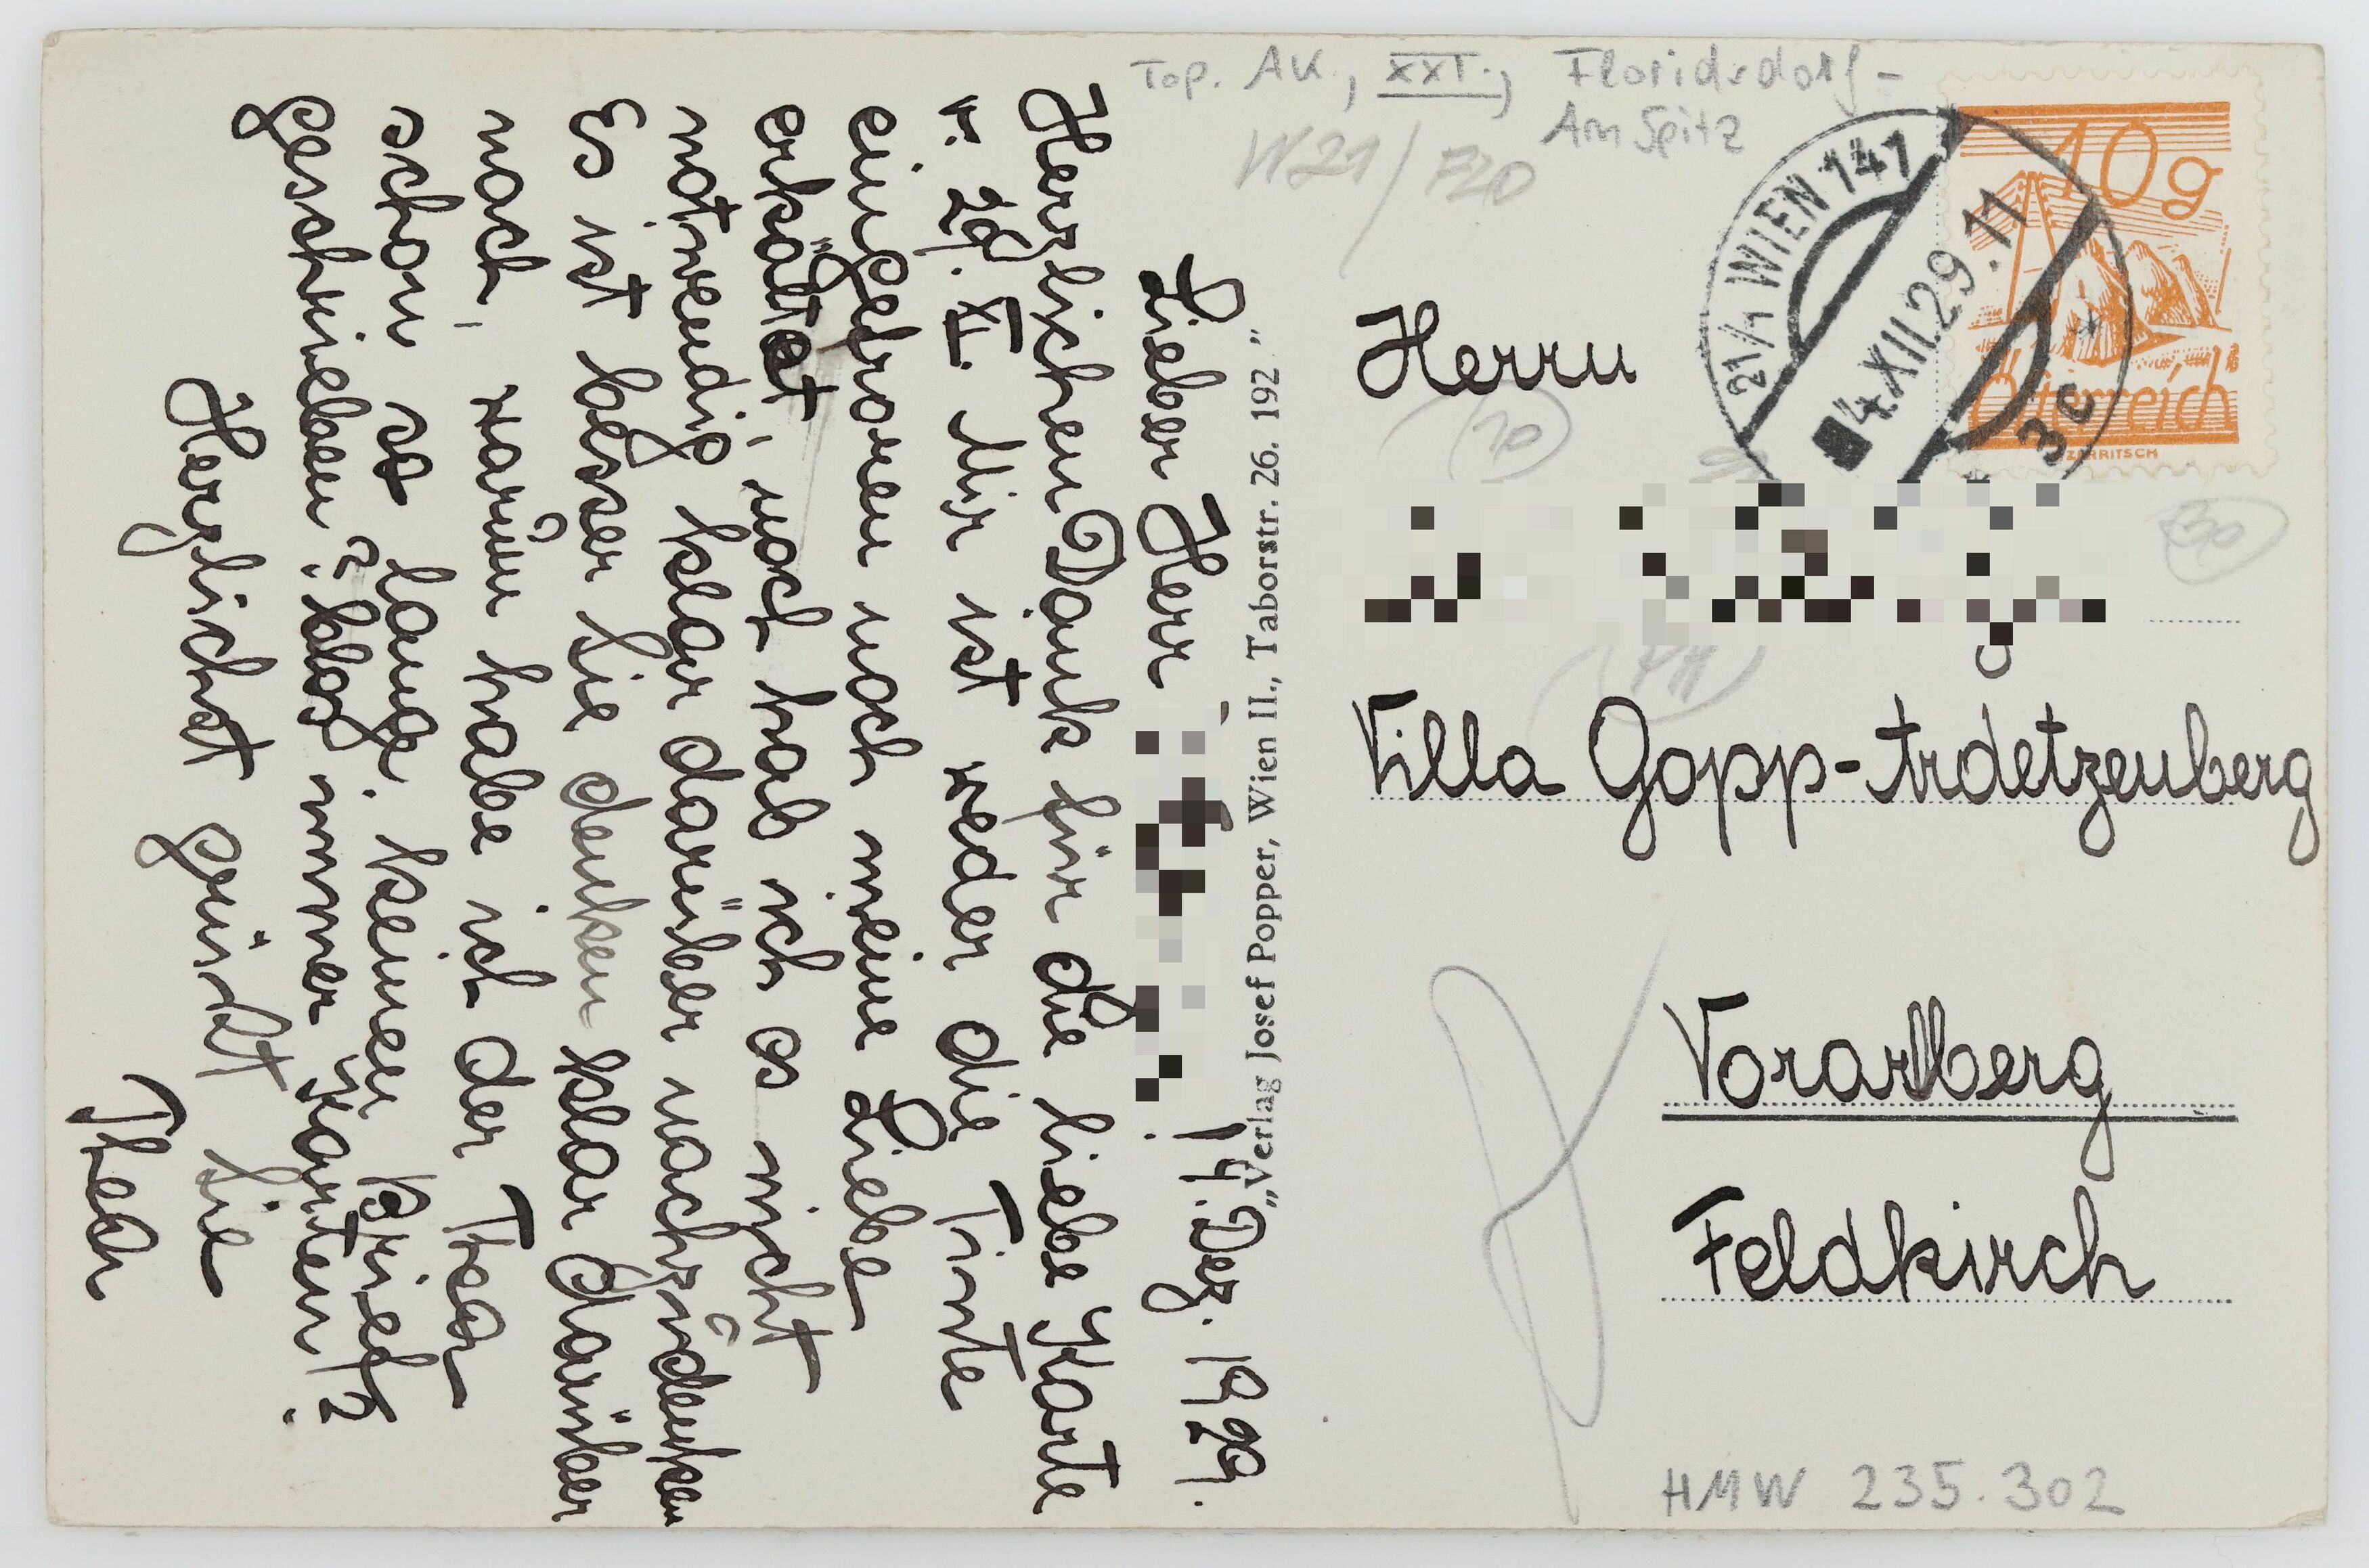 Top. AK., XXI., Floridsdorf-
Am Spitz
W21/FLO
10g
Österreich
21/1 WIEN 141
4.XII.29.11
3c
Herrn
Villa Gopp-Ardetzenberg
Vorarlberg
Feldkirch
HMW 235.302
"Verlag Josef Popper, Wien II., Taborstr. 26. 192"
14. Dez. 1929.
Lieber Herr
Herzlichen Dank für die liebe Karte
v. 29. XI. Mir ist weder die Tinte
eingefroren noch meine Liebe
erkältet, noch hab ich es nicht
notwendig klar darüber nachzudenken
Es ist besser Sie denken klar darüber
nach, warum habe ich der Thea
schon so lange keinen Brief
geschrieben? blos immer Karten?
Herzlichst grüßt Sie
Thea